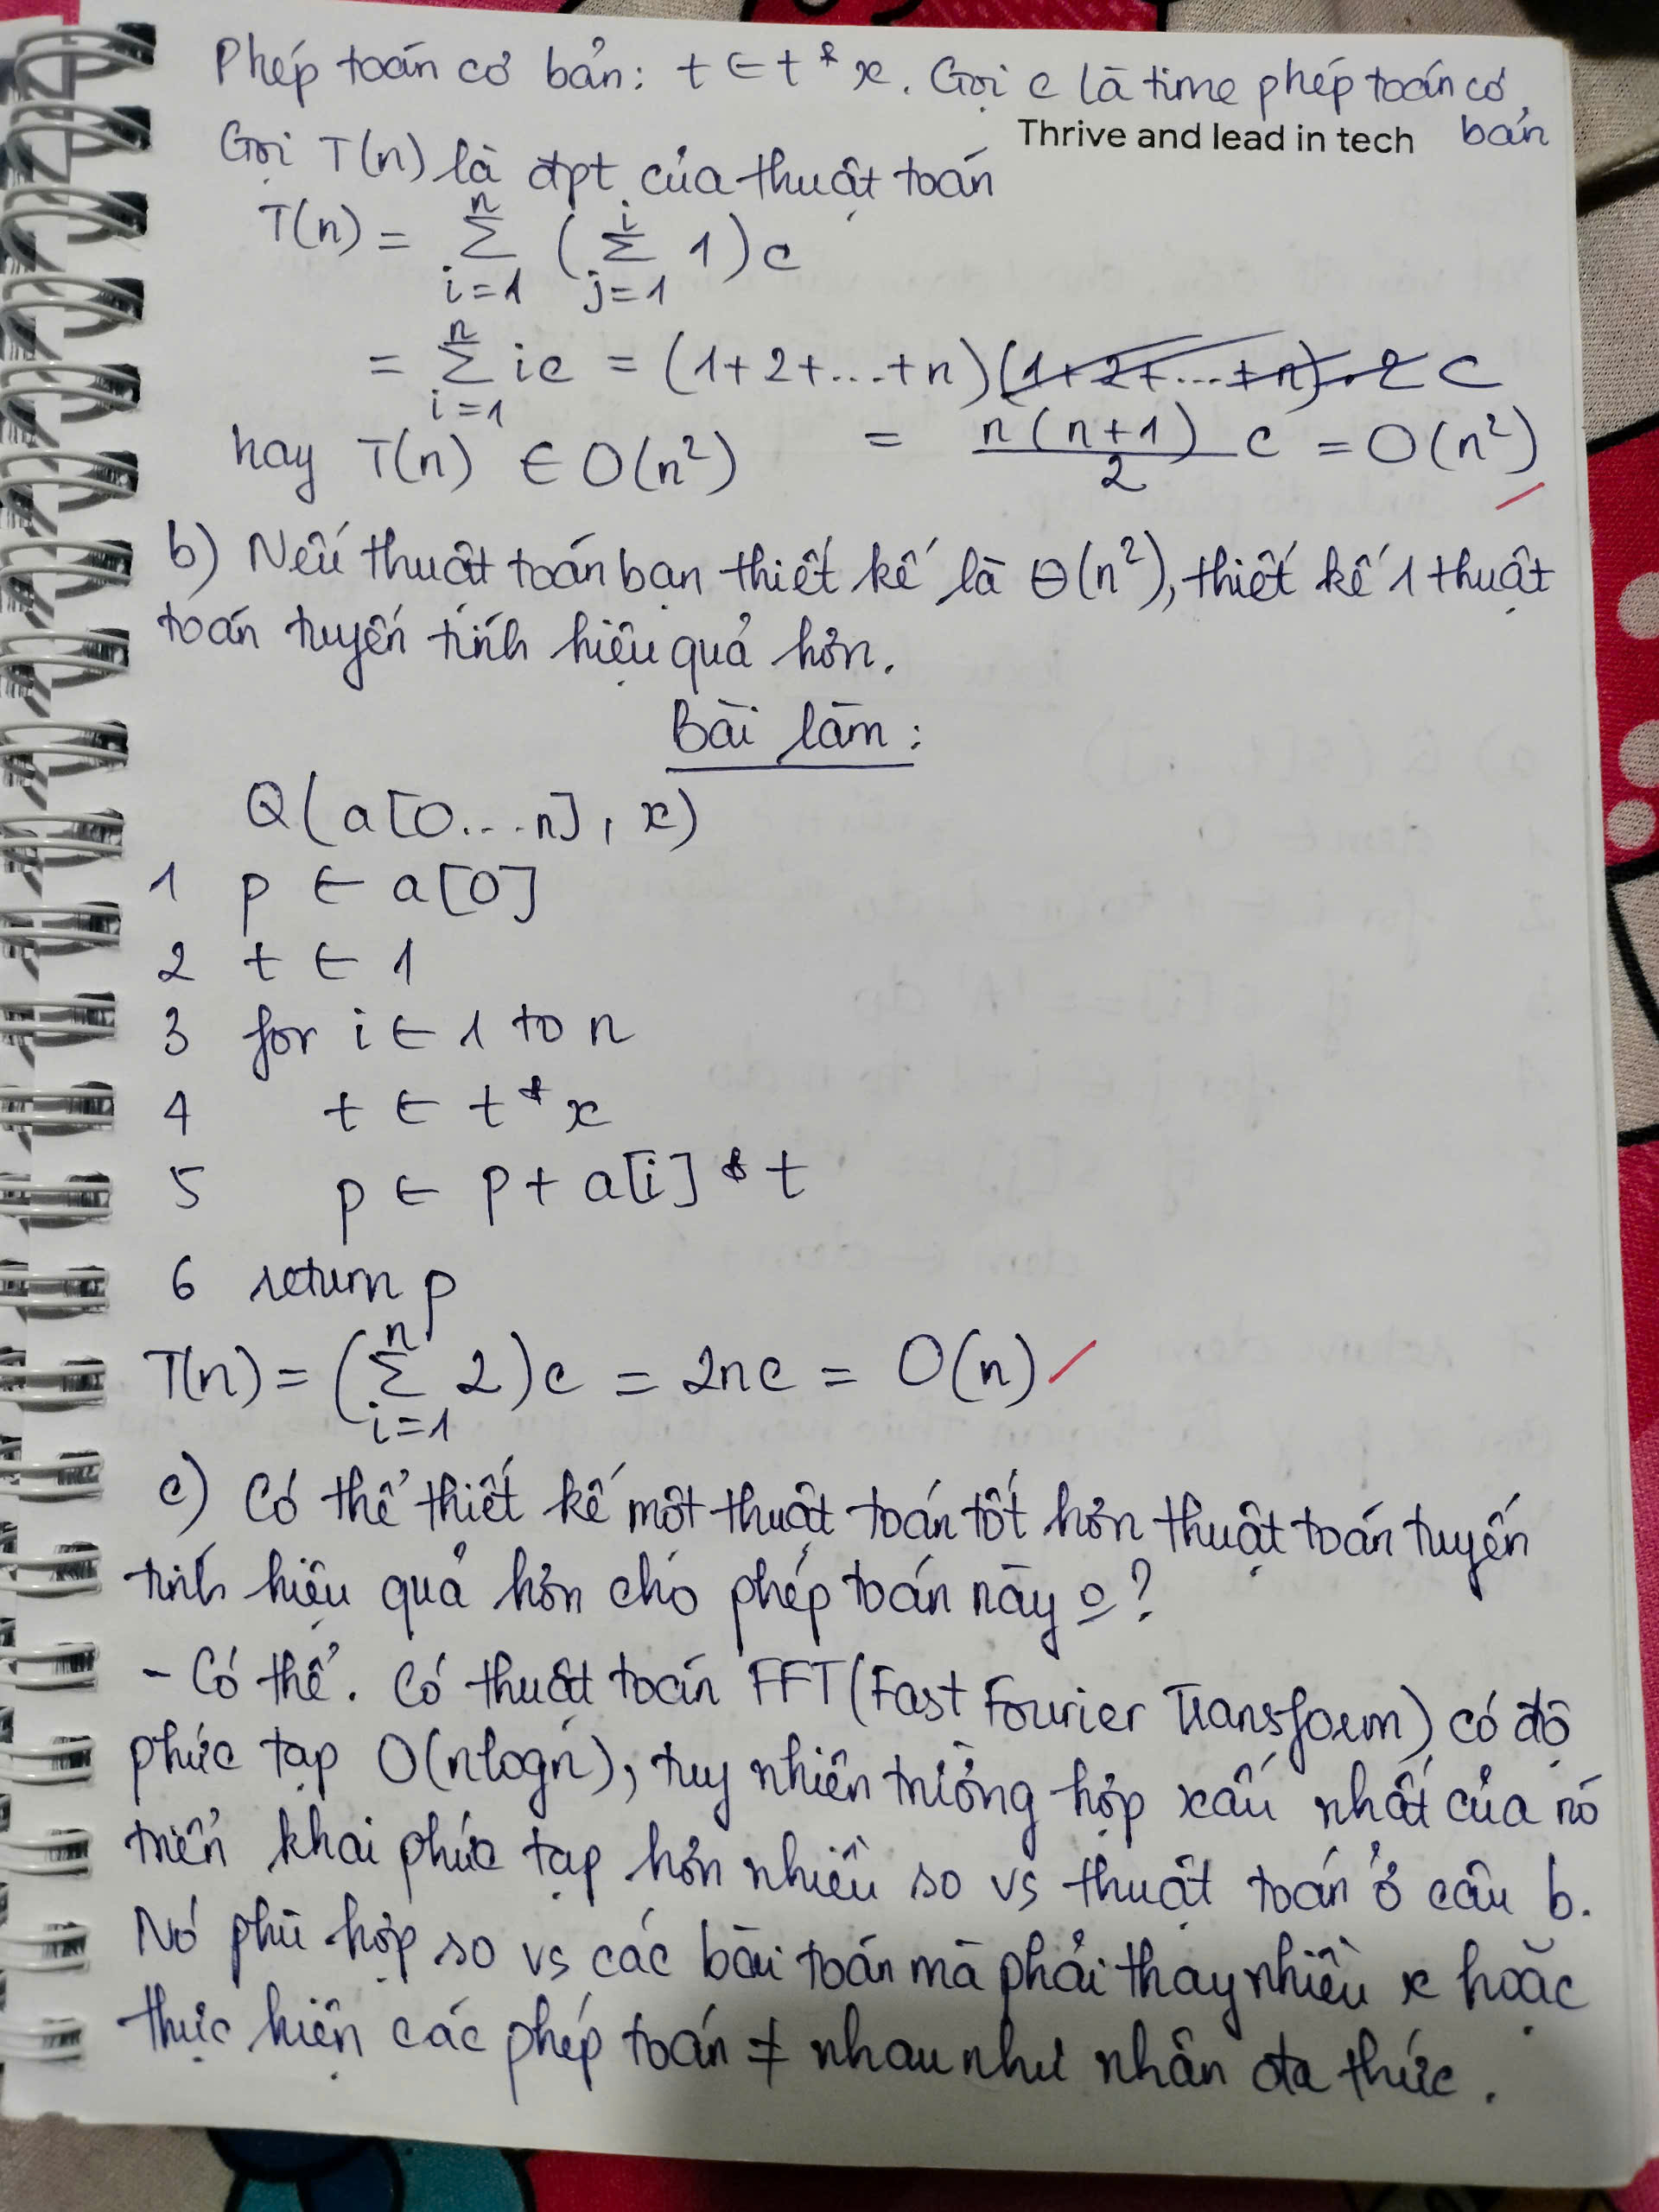 Phép toán cơ bản: t ← t * x. Gọi c là time phép toán cơ
Thrive and lead in tech bản
Gọi T(n) là đpt của thuật toán
T(n) = \sum_{i=1}^{n} (\sum_{j=1}^{i} 1) c
= \sum_{i=1}^{n} ic = (1+2+...+n) (1+2+...+n).2 c
hay T(n) ∈ O(n²) = \frac{n(n+1)}{2} c = O(n²)
b) Nếu thuật toán bạn thiết kế là Θ(n²), thiết kế 1 thuật
toán tuyến tính hiệu quả hơn.
Bài làm:
Q(a[0...n], x)
1 p ← a[0]
2 t ← 1
3 for i ← 1 to n
4 t ← t * x
5 p ← p + a[i] * t
6 return p
T(n) = (\sum_{i=1}^{n} 2) c = 2nc = O(n)
c) Có thể thiết kế một thuật toán tốt hơn thuật toán tuyến
tính hiệu quả hơn cho phép toán này o?
- Có thể. Có thuật toán FFT (Fast Fourier Transform) có độ
phức tạp O(nlogn), tuy nhiên trường hợp xấu nhất của nó
triển khai phức tạp hơn nhiều so vs thuật toán ở câu b.
Nó phù hợp so vs các bài toán mà phải thay nhiều x hoặc
thực hiện các phép toán ≠ nhau như nhân đa thức.